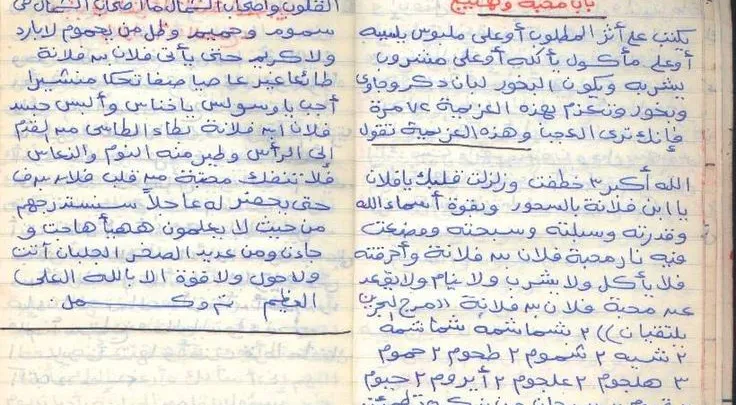 بابا محبة وتهييج
يكتب على أثر المطلوب أو على ملبوس يلبسه
أو على مأكول يأكله أو على مشروب
يشربه ويكون البخور لبان ذكر وجاوي
وبخور وتعزم بهذه العزيمة ٧٤ مرة
فإنك ترى العجب وهذه العزيمة تقول
الله أكبر ٣ خطفت وزلزلت قلبك يا فلان
يا ابن فلانة بالسحور وبقوة أسماء الله
وقدرته وسبلته وسبحته ووضعت
فيه نار محبة فلان بن فلانة وأحرقته
فلا يأكل ولا يشرب ولا ينام ولا يقعد
عن محبة فلان بن فلانة ((مرج البحرين
يلتقيان)) ٢ شماشمة شماشمة
٢ شيه ٢ شموم ٢ طحوم ٢ حموم
٣ هلجوم ٢ علجوم ٢ أبروم ٢ حيوم
القلوب وأصحاب الشمال ما أصحاب الشمال في
سموم وحميم وظل من يحموم لا بارد
ولا كريم حتى يأتي فلان بن فلانة
طائعا غير عاصيا
أجب يا وسواس يا خناس وألبس جسد
فلان ابن فلانة
إلى الرأس وطير منه النوم والنعاس
فلا تنفك محبة من قلب فلان بن ف
حتى يحضر له عاجلاً سنستدرجهم
من حيث لا يعلمون ههيأ هاجت و
جاءت ومن عديد الصخر الجلبان أتت
ولا حول ولا قوة الا بالله العلي
العظيم تم وكمل